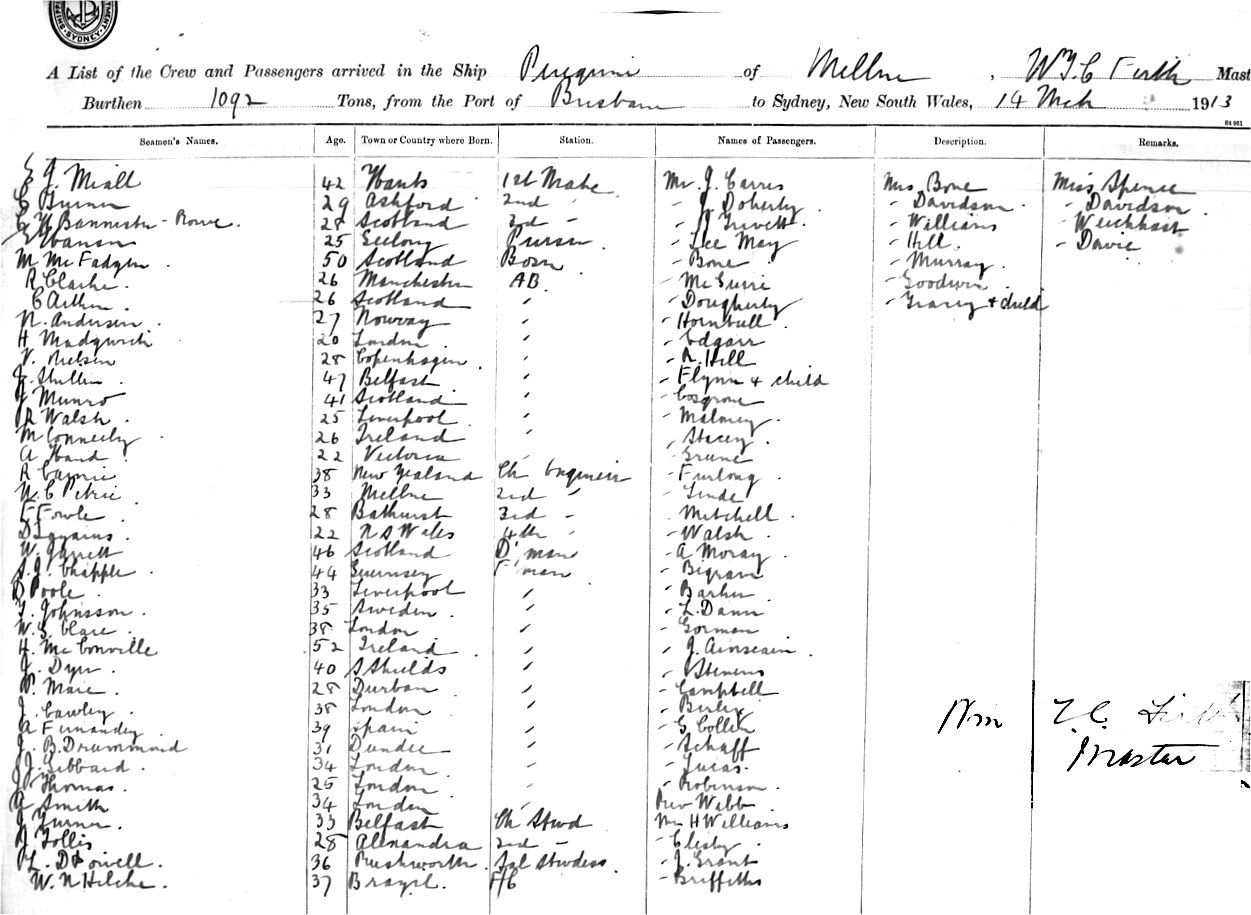 SYDNEY
A List of the Crew and Passengers arrived in the Ship of Mellne, W.T.C Firth Mast
Burthen 1092 Tons, from the Port of Brisbane to Sydney, New South Wales, 14 Mch 1913
St 961
Seamen's Names. Age. Town or Country where Born. Station. Names of Passengers. Description. Remarks.
E J. Miall 42 Hants 1st Mate Mr. J. Carres Mrs Bone Miss Spence
29 Ashford 2nd " - J. Doherty - Davidson - Davidson
Bannister-Rowe 28 Scotland 3rd - - J Trevett - Williams
E Hansen 25 Geelong Purser - Lee May - Hill - Davie
M McFadyen 50 Scotland Bosn - Bone - Murray
R Clarke 26 Manchester AB - McGuire - Goodwin
C Aitken 26 Scotland " - Dougherty - Gracey & child
N. Andersen 27 Norway " - Hornbull
H Madgwick 20 London " - Edgarr
V. Nielsen 28 Copenhagen " - R. Hill
J. Shullen 47 Belfast " - Flynn & child
J Munro 41 Scotland " - Cosgrove
R Walsh 25 Liverpool " - Maloney
M Conneely 26 Ireland " - Stacey
A Hand 22 Victoria " - Greene
R Cayrie 38 New Zealand Ch Engineer - Furlong
W. C Petrie 33 Mellne 2nd " - Linde
F Fowle 28 Bathurst 3rd - - Mitchell
D 22 N S Wales 4th - - Walsh
W. Garrett 46 Scotland D'man - A Moray
S. J. Chapple 44 Guernsey F'man - Bigrave
D Poole 33 Liverpool " - Barker
T. Johnsson 35 Sweden " - L. Dann
W. S. Clare 38 London " - Gorman
H. McConville 52 Ireland " - J.
J. Dyer 40 S Shields " - Stevens
P. Marie 28 Durban " - Campbell
J. Cawley 38 London " -
A Fernandez 39 Spain " - G Collin
J. B. Drummond 31 Dundee " - Schaff
J J Gibbard 34 London " - Lucas
J Thomas 25 London " - Robinson
G Smith 34 London " Rev Webb
J Turner 33 Belfast Ch Stwd Mr H Williams
J Follis 28 Alexandra 2nd - - Clesby
L. D Powell 36 Rushworth Sgl Stwdess - J. Grant
W. N Hilche 37 Brazil F/C - Griffiths
Wm T. C. Firth
Master